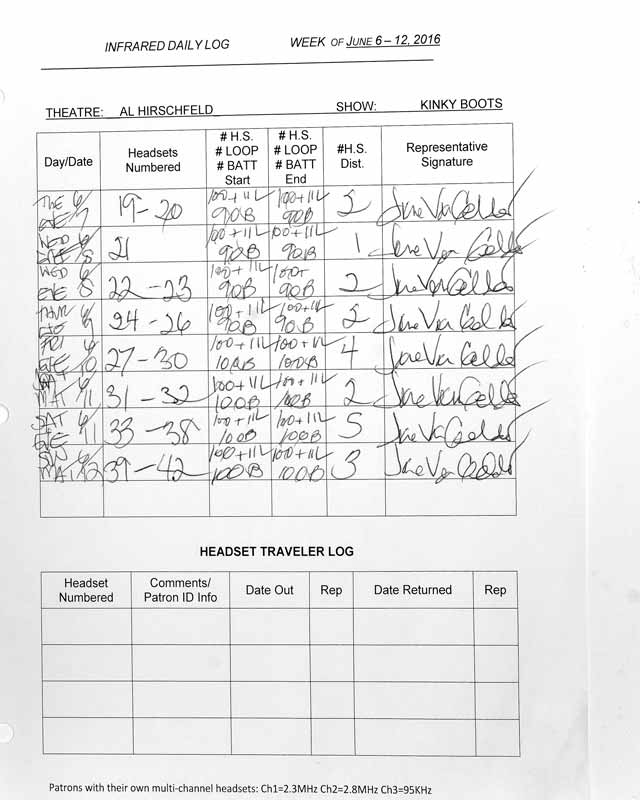 INFRARED DAILY LOG WEEK OF JUNE 6 – 12, 2016
THEATRE: AL HIRSCHFELD SHOW: KINKY BOOTS
Day/Date Headsets Numbered # H.S. # LOOP # BATT Start # H.S. # LOOP # BATT End #H.S. Dist. Representative Signature
TUE 6/7 EVE 19-20 100+11L 90B 100+11L 90B 2
WED 6/8 21 100+11L 90B 100+11L 90B 1
WED 6/8 EVE 22-23 100+11L 90B 100+ 90B 2
6/9 EVE 24-26 100+11L 90B 100+11L 90B
FRI 6/10 EVE 27-30 100+11L 100B 100+11L 100B 4
SAT 6/11 MAT 31-32 100+11L 100B 100+11L 100B 2
SAT 6/11 EVE 33-38 100+11L 100B 100+11L 100B 5
SUN 6/12 MAT 39-42 100+11L 100B 100+11L 100B 3
HEADSET TRAVELER LOG
Headset Numbered Comments/ Patron ID Info Date Out Rep Date Returned Rep
Patrons with their own multi-channel headsets: Ch1=2.3MHz Ch2=2.8MHz Ch3=95KHz